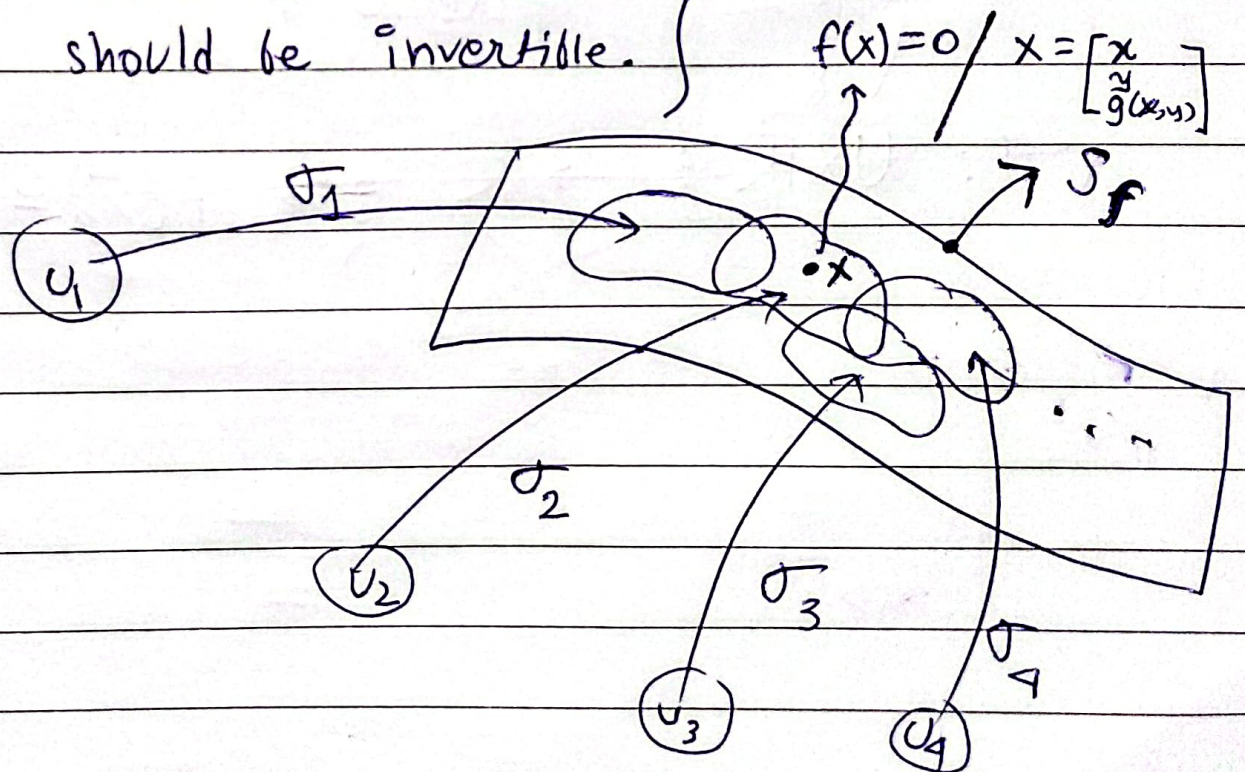 should be invertible. } f(x)=0 / x = [x
y
g(x,y)]
σ1
S_f
U1
•x
σ2
U2
σ3
σ4
U3
U4